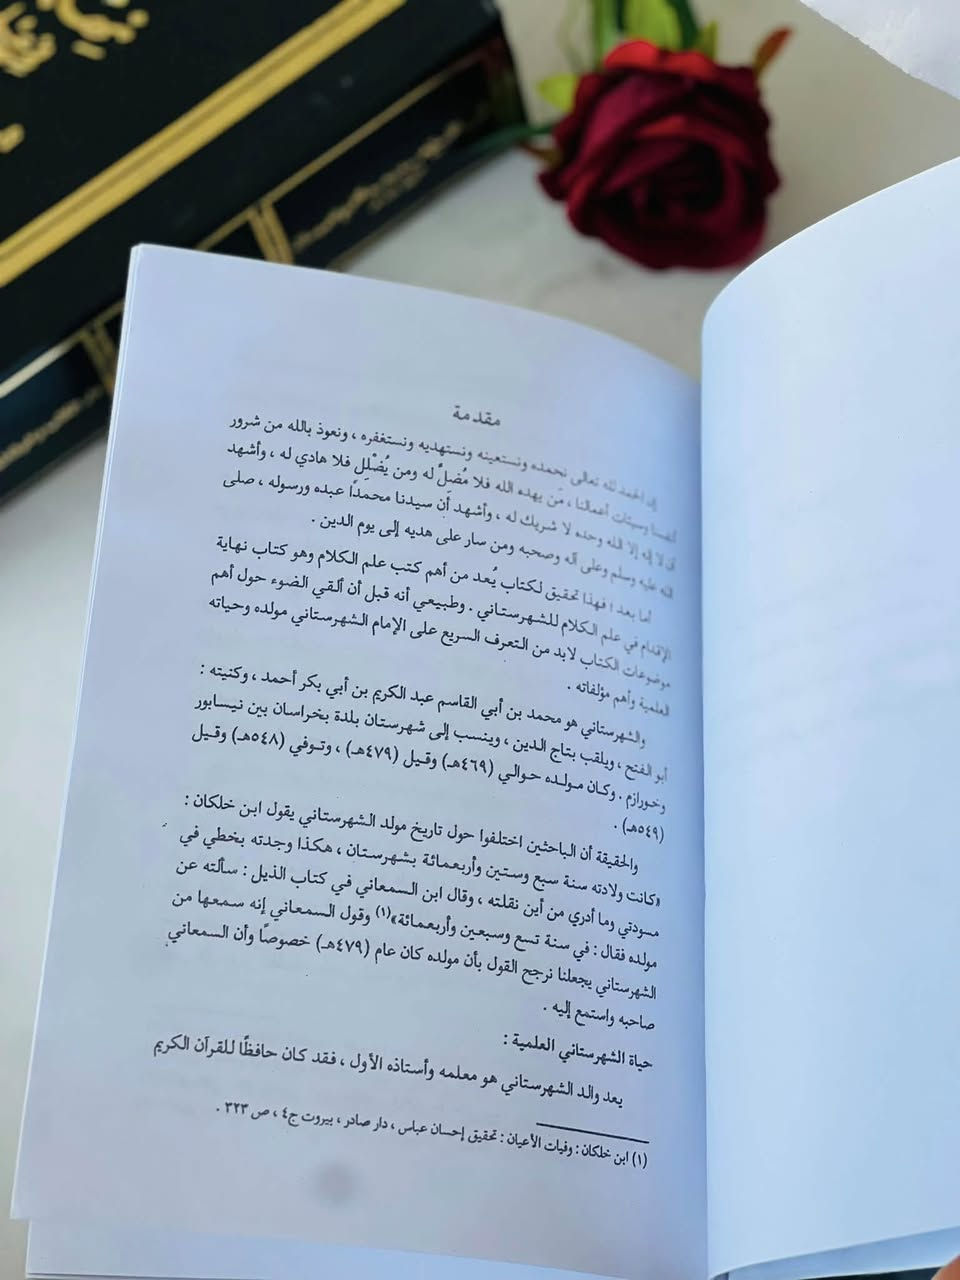 مقدمة
إن الحمد لله تعالى نحمده ونستعينه ونستهديه ونستغفره ، ونعوذ بالله من شرور
أنفسنا وسيئات أعمالنا ، مَن يهده الله فلا مُضِلَّ له ومن يُضْلِل فلا هادي له ، وأشهد
أن لا إله إلا الله وحده لا شريك له ، وأشهد أن سيدنا محمدًا عبده ورسوله ، صلى
الله عليه وسلم وعلى آله وصحبه ومن سار على هديه إلى يوم الدين .
أما بعد ؛ فهذا تحقيق لكتاب يُعد من أهم كتب علم الكلام وهو كتاب نهاية
الإقدام في علم الكلام للشهرستاني . وطبيعي أنه قبل أن ألقي الضوء حول أهم
موضوعات الكتاب لابد من التعرف السريع على الإمام الشهرستاني مولده وحياته
العلمية وأهم مؤلفاته .
والشهرستاني هو محمد بن أبي القاسم عبد الكريم بن أبي بكر أحمد ، وكنيته :
أبو الفتح ، ويلقب بتاج الدين ، وينسب إلى شهرستان بلدة بخراسان بين نيسابور
وخوارزم . وكان مولده حوالي (٤٦٩هـ) وقيل (٤٧٩هـ) ، وتوفي (٥٤٨هـ) وقيل
(٥٤٩هـ) .
والحقيقة أن الباحثين اختلفوا حول تاريخ مولد الشهرستاني يقول ابن خلكان :
«كانت ولادته سنة سبع وستين وأربعمائة بشهرستان ، هكذا وجدته بخطي في
مسودتي وما أدري من أين نقلته ، وقال ابن السمعاني في كتاب الذيل : سألته عن
مولده فقال : في سنة تسع وسبعين وأربعمائة»(١) وقول السمعاني إنه سمعها من
الشهرستاني يجعلنا نرجح القول بأن مولده كان عام (٤٧٩هـ) خصوصًا وأن السمعاني
صاحبه واستمع إليه .
حياة الشهرستاني العلمية :
يعد والد الشهرستاني هو معلمه وأستاذه الأول ، فقد كان حافظًا للقرآن الكريم
(١) ابن خلكان : وفيات الأعيان : تحقيق إحسان عباس ، دار صادر ، بيروت ج٤ ، ص ٣٢٣ .